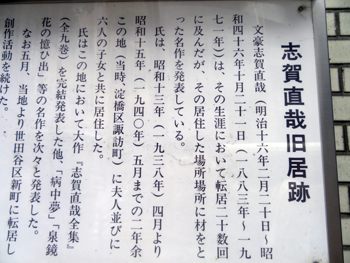 志賀直哉旧居跡
文豪志賀直哉（明治十六年二月二十日～昭
和四十六年十月二十一日（一八八三年～一九
七一年））はその生涯において転居二十数回
に及んだが、その居住した場所場所に材をと
った名作を発表している。
氏は、昭和十三年（一九三八年）四月より
昭和十五年（一九四〇年）五月までの二年余
この地（当時、淀橋区諏訪町）に夫人並びに
六人の子女と共に居住した。
氏はこの地において大作『志賀直哉全集』
（全九巻）を完結発表した他、「病中夢」「泉鏡
花の憶ひ出」等の名作を次々と発表した。
なお五月、当地より世田谷区新町に転居し
創作活動を続けた。